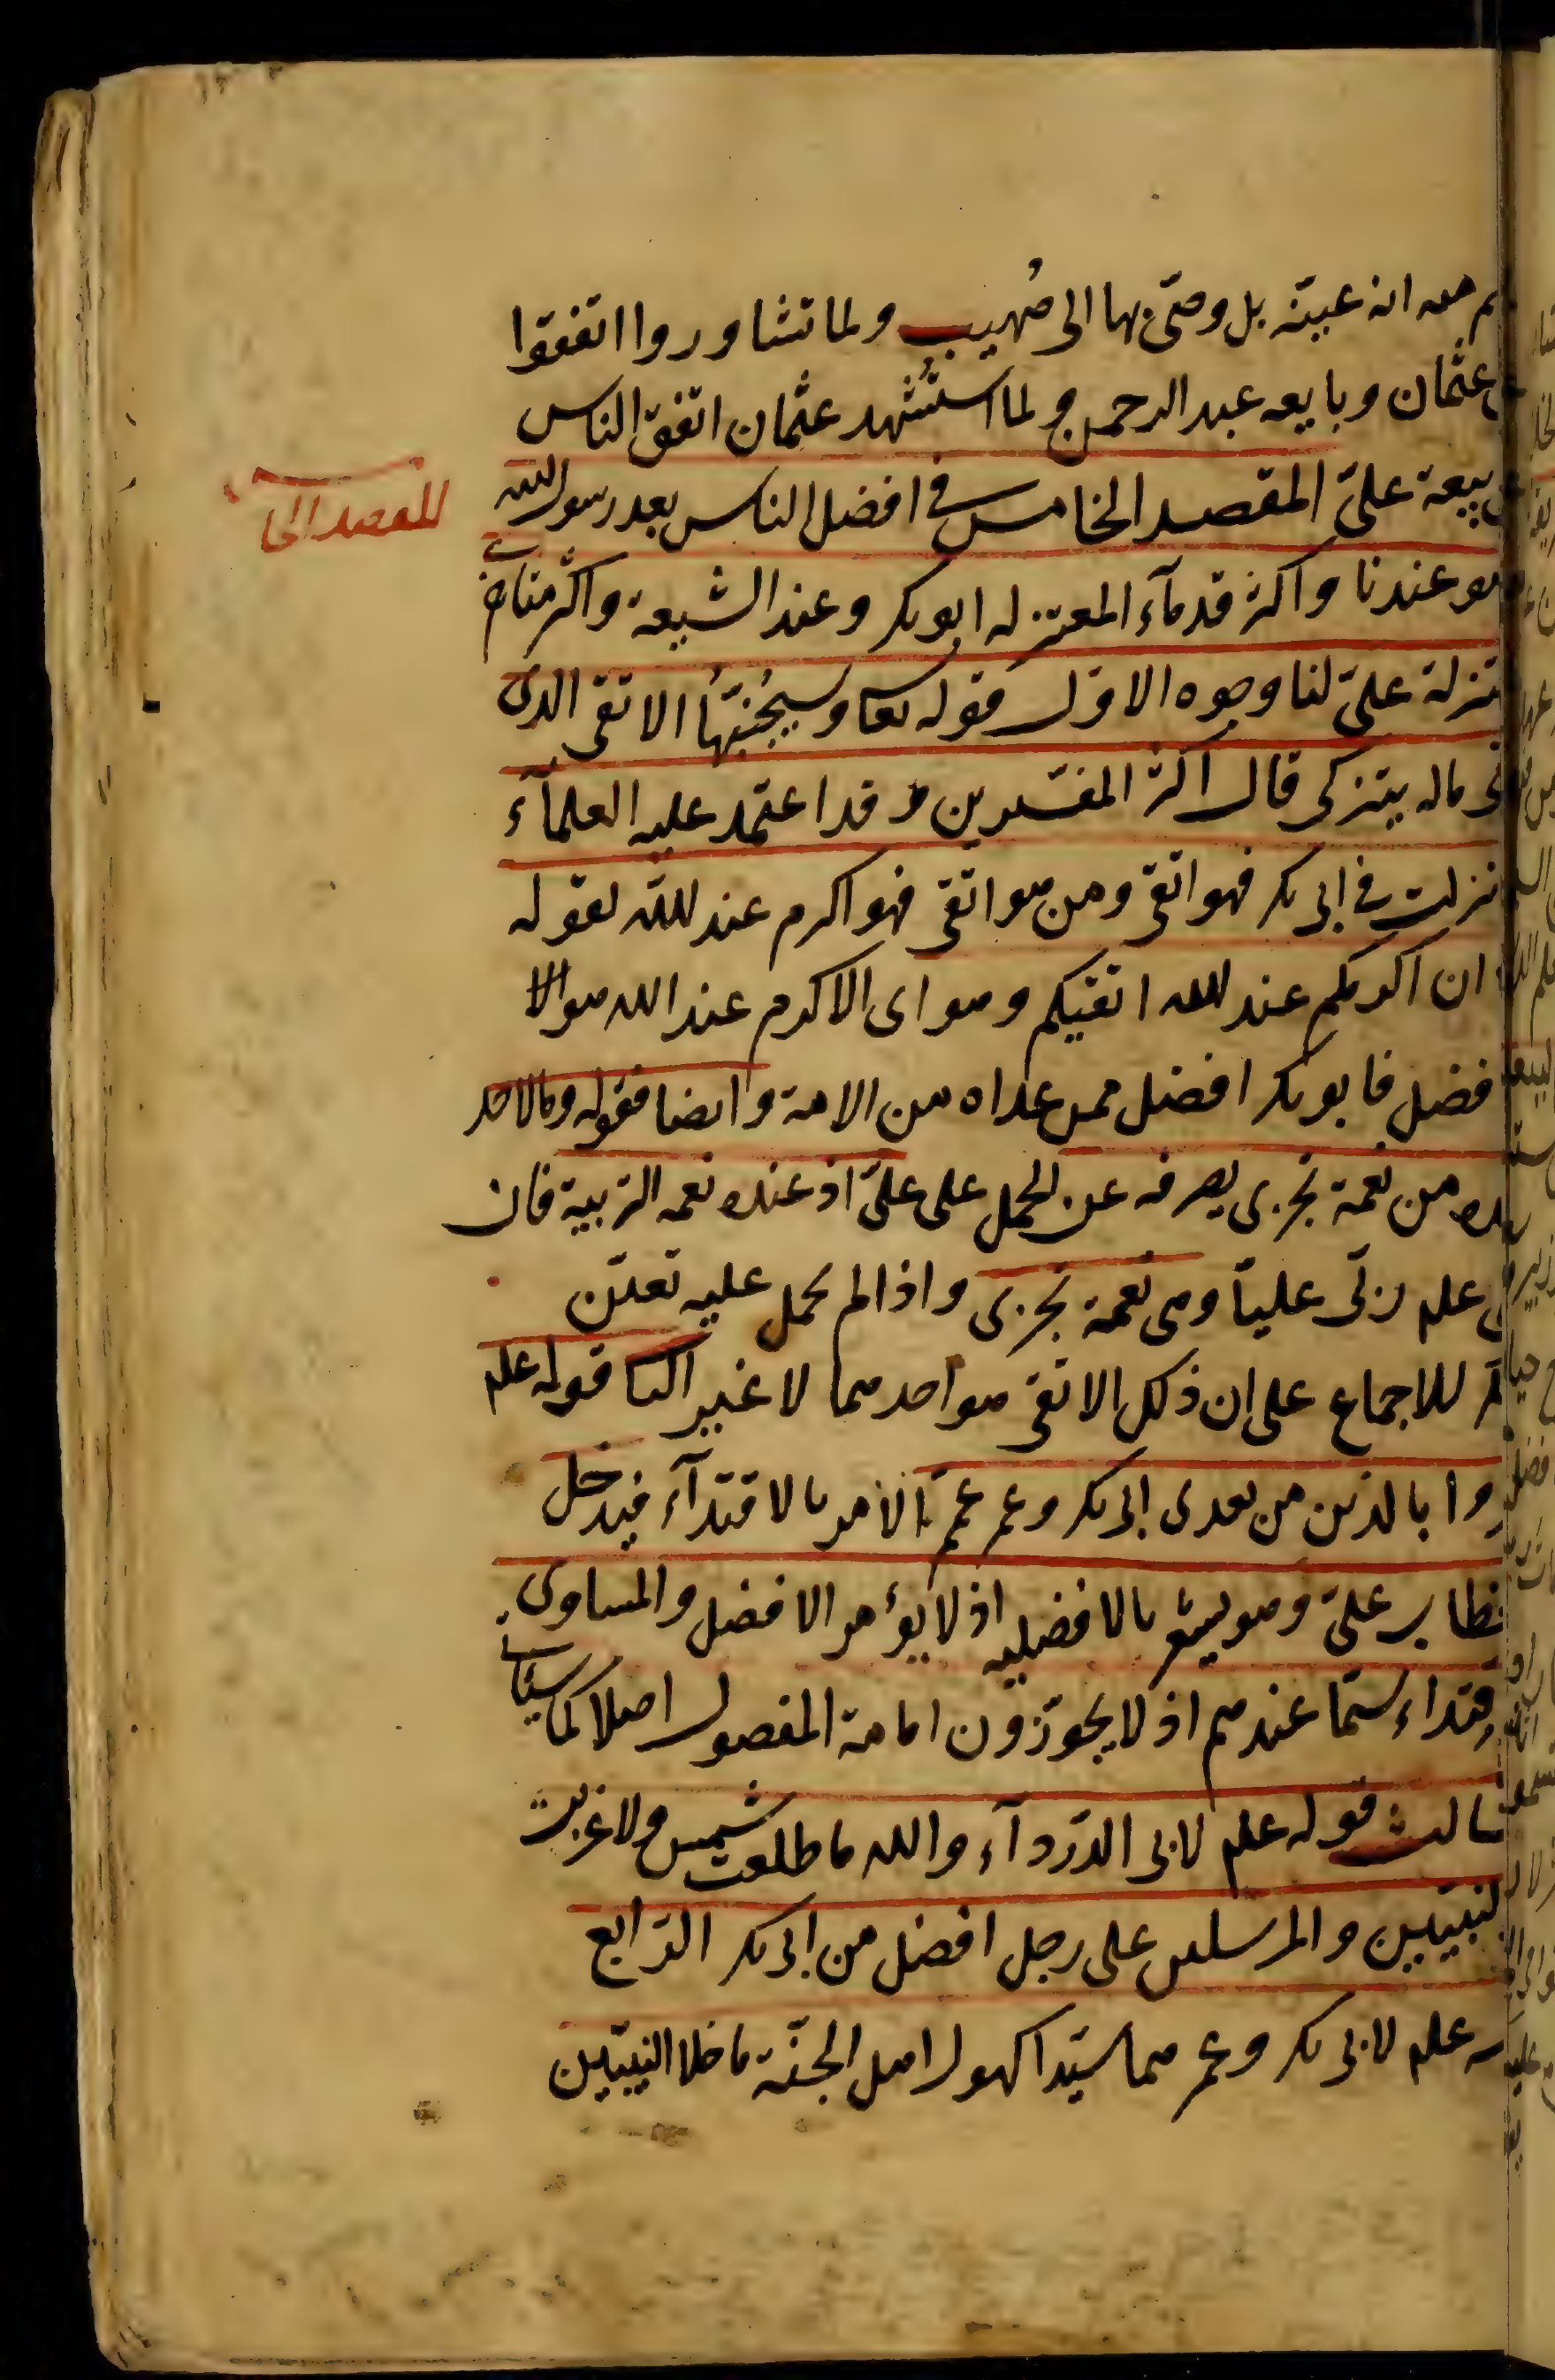 منه انه عينه بل وصى بها الى صُهيب ولما تشاوروا اتفقوا
عثمان وبايعه عبد الرحمن ولما استُشهد عثمان اتفق الناس
بيعة علىّ المقصد الخامس فى افضل الناس بعد رسول الله
المقصد الخا
هو عندنا واكثر قدمآء المعتزله ابو بكر وعند الشيعة واكثر متاخرى
تزلة علىّ لنا وجوه الاوّل قوله تعا وسيُجنبهُا الاتقى الذى
ماله يتزكى قال اكثر المفسّرين وقد اعتمد عليه العلمآء
نزلت فى ابى بكر فهو اتقى ومن هو اتقى فهو اكرم عند اللّه لقوله
ان اكرمكم عند الله اتقيكم وهو اى الاكرم عند الله هو الا
فضل فابو بكر افضل ممن عداه من الامة وايضا فقوله وما لاحد
عنده من نعمة تجزى يصرفه عن الحمل على علىّ اذ عنده نعمه التربية فان
علم ربّى علياً وهى نعمة تجزى واذا لم يحمل عليه تعيّن
للاجماع على ان ذلك الاتقى هو احدهما لا غير الثا قوله علم
وا بالذين من بعدى ابى بكر وعمر عمّ الامر بالاقتدآء فيدخل
خطاب علىّ وهو يشعر بالافضليه اذ لا يؤمر الافضل والمساوى
قتداء سيّما عندهم اذ لا يجوّزون امامة المفضول اصلا كما سيأتى
ثالث قوله علم لابى الدّردآء والله ما طلعت شمس ولا غربت
النبيّين والمرسلين على رجل افضل من ابى بكر الرّابع
علم لابى بكر وعمر هما سيّدا كهول اهل الجنّة ما خلا النبيّين